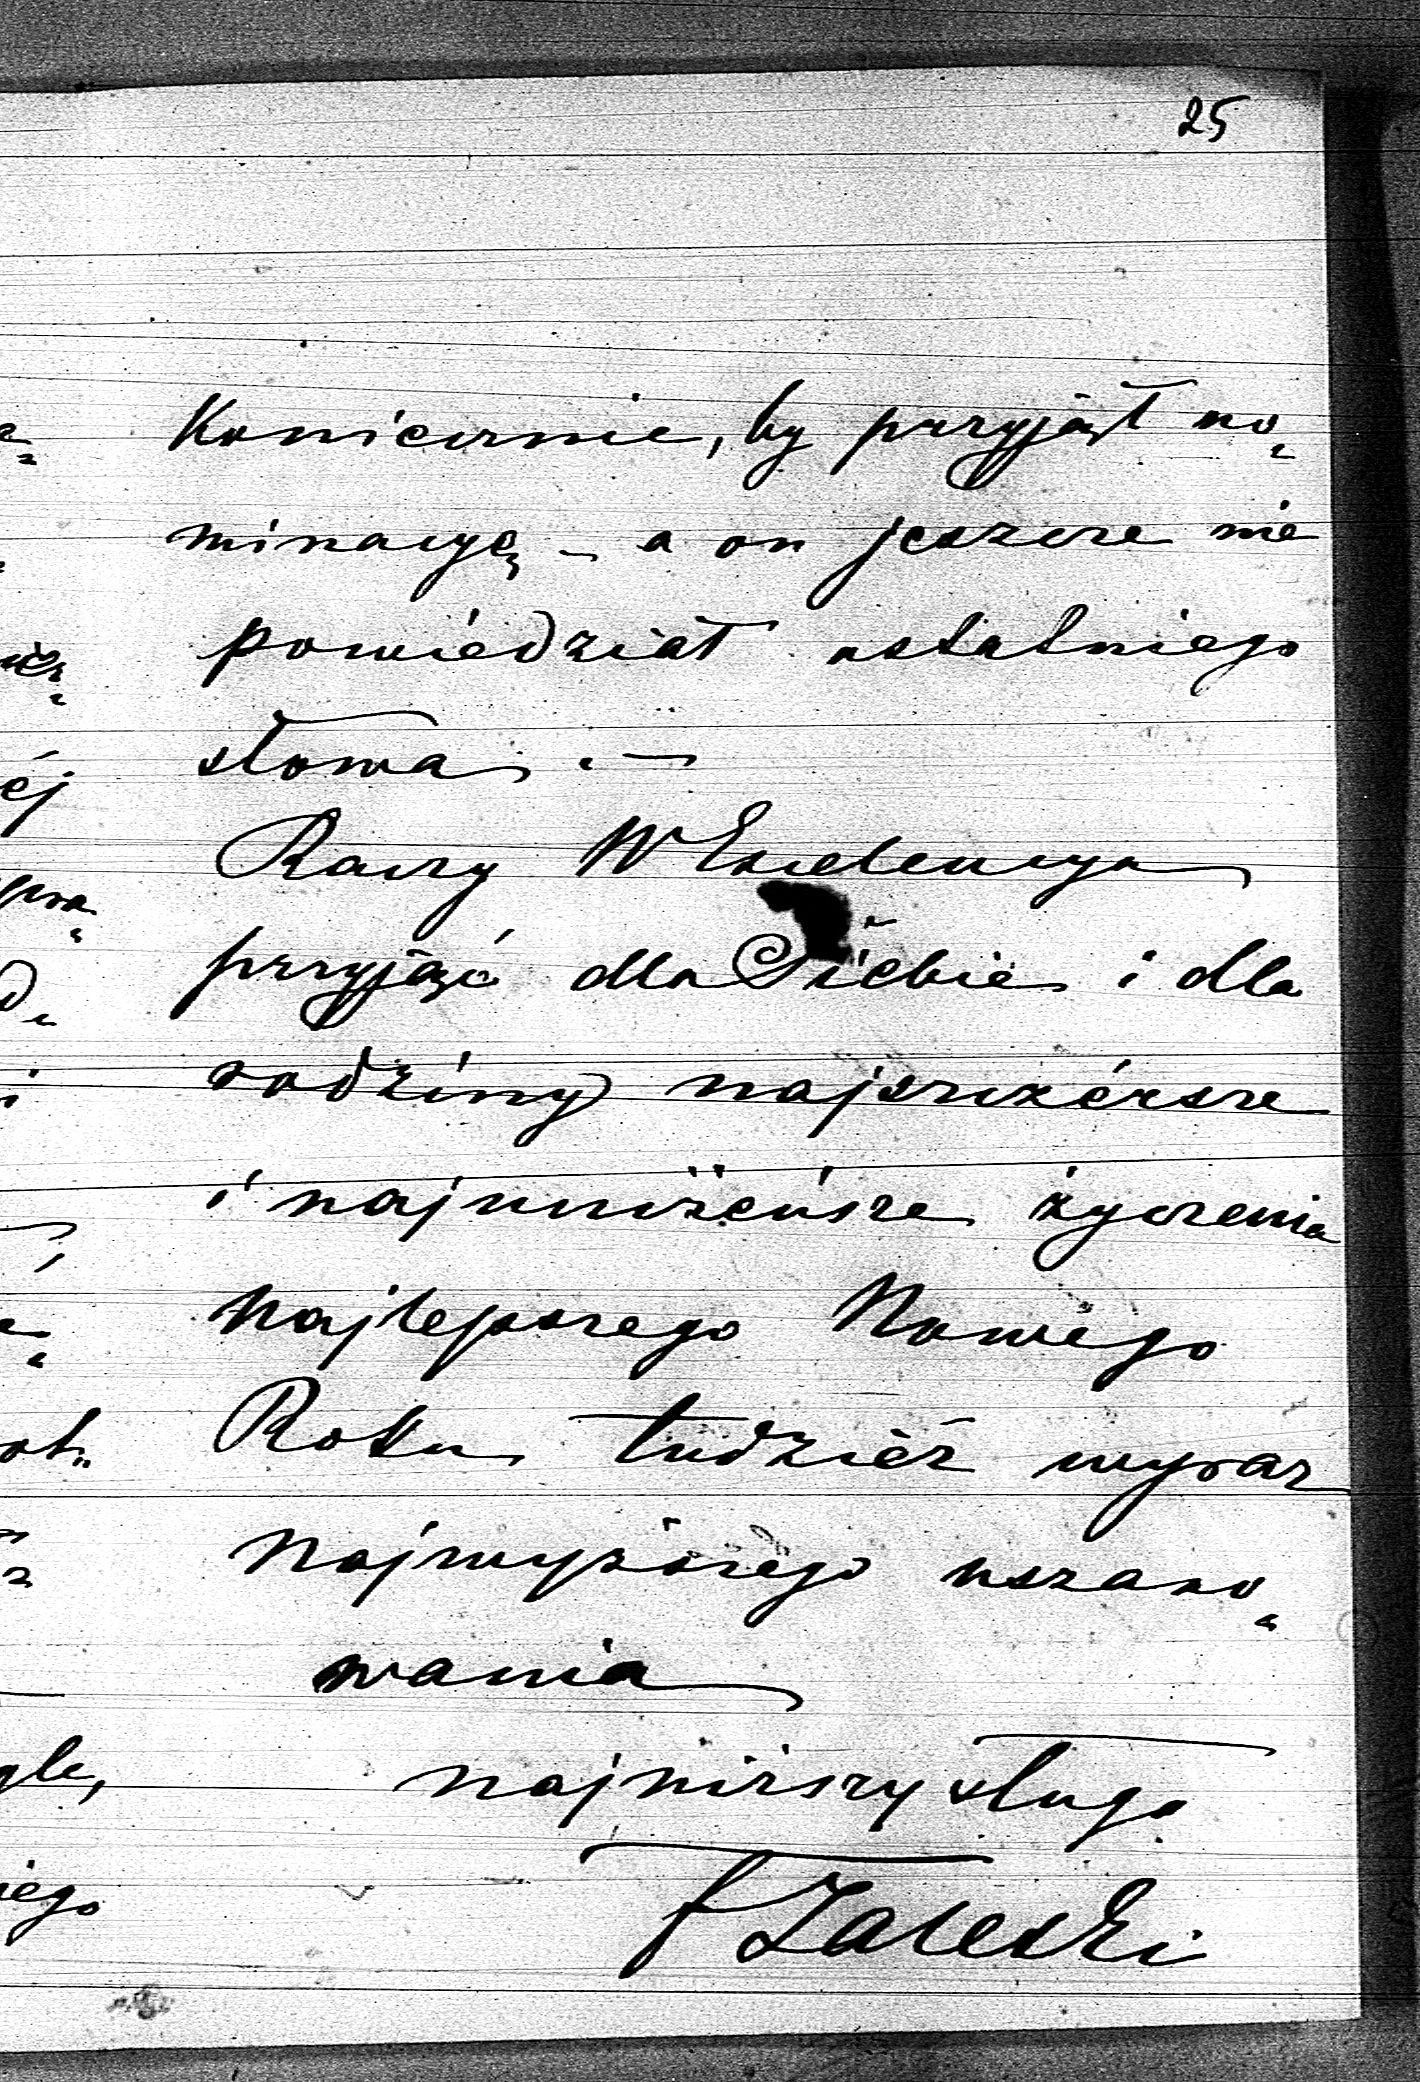 25
Koniecznie, by przyjął no„
minacyę – a on jeszcze nie
powiedział ostatniego
słowa. —
Raczy W Excelencya
przyjąć dla Siebie i dla
rodziny najszczérsze
i najuniżeńsze życzenia
najlepszego Nowego
Roku tudzież wyraz
najwyższego uszano„
wania
najniższy sługa
F Zaleski